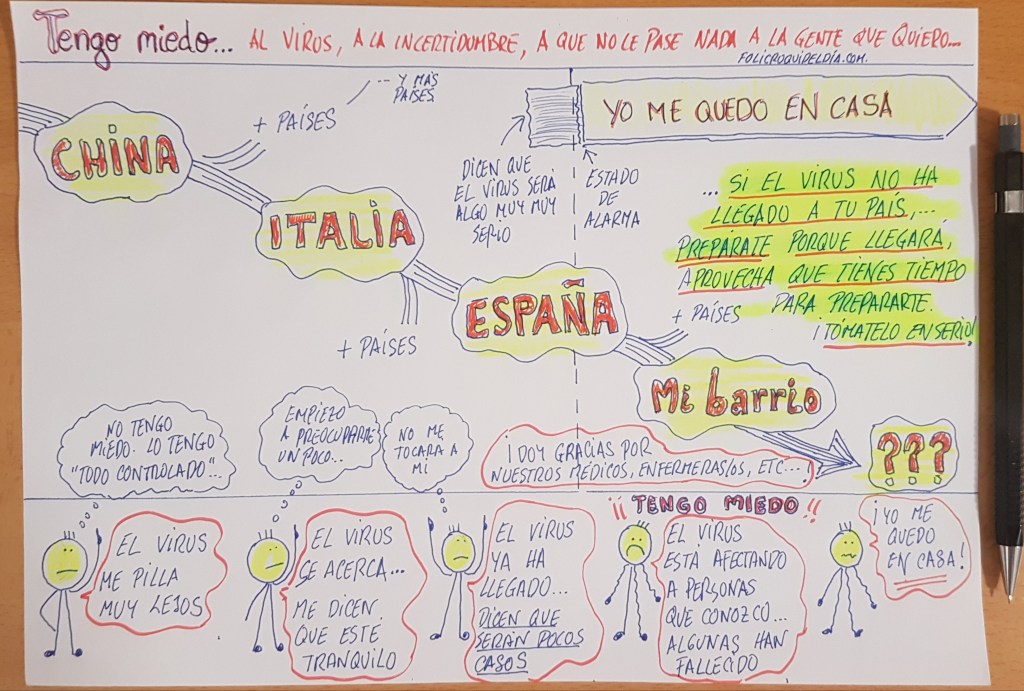 Tengo miedo... AL VIRUS, A LA INCERTIDUMBRE, A QUE NO LE PASE NADA A LA GENTE QUE QUIERO...
FOLICROQUIDELDÍA.COM.
... Y MÁS
PAÍSES
+ PAÍSES
CHINA
YO ME QUEDO EN CASA
DICEN QUE
EL VIRUS SERÁ
ALGO MUY MUY
SERIO
ESTADO
DE
ALARMA
... SI EL VIRUS NO HA
LLEGADO A TU PAÍS,...
PREPÁRATE PORQUE LLEGARÁ,
APROVECHA QUE TIENES TIEMPO
PARA PREPARARTE.
¡TÓMATELO EN SERIO!
ITALIA
+ PAÍSES
ESPAÑA
+ PAÍSES
Mi barrio
???
NO TENGO
MIEDO. LO TENGO
"TODO CONTROLADO"...
EMPIEZO
A PREOCUPARME
UN POCO...
NO ME
TOCARA A
MI
¡DOY GRACIAS POR
NUESTROS MÉDICOS, ENFERMERAS/OS, ETC...!
¡¡TENGO MIEDO!!
EL VIRUS
ME PILLA
MUY LEJOS
EL VIRUS
SE ACERCA...
ME DICEN
QUE ESTÉ
TRANQUILO
EL VIRUS
YA HA
LLEGADO...
DICEN QUE
SERÁN POCOS
CASOS
EL VIRUS
ESTÁ AFECTANDO
A PERSONAS
QUE CONOZCO...
ALGUNAS HAN
FALLECIDO
¡YO ME
QUEDO
EN CASA!